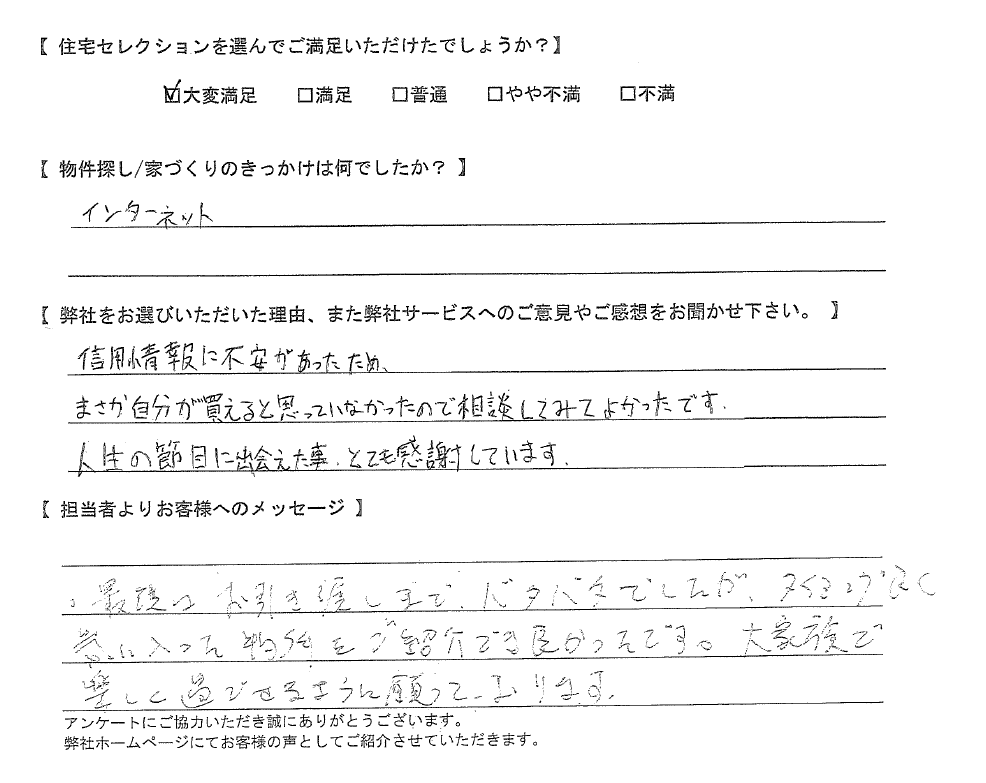 【 住宅セレクションを選んでご満足いただけたでしょうか？】
☑大変満足 □満足 □普通 □やや不満 □不満
【 物件探し/家づくりのきっかけは何でしたか？ 】
インターネット
【 弊社をお選びいただいた理由、また弊社サービスへのご意見やご感想をお聞かせ下さい。 】
信用情報に不安があったため、
まさか自分が買えると思っていなかったので相談してみてよかったです.
人生の節目に出会えた事、とても感謝しています.
【 担当者よりお客様へのメッセージ 】
最後は お引き渡しまで、バタバタでしたが、タイミング良く
気に入った物件をご紹介でき良かったです。大家族で
楽しく過ごせるように願って おります.
アンケートにご協力いただき誠にありがとうございます。
弊社ホームページにてお客様の声としてご紹介させていただきます。